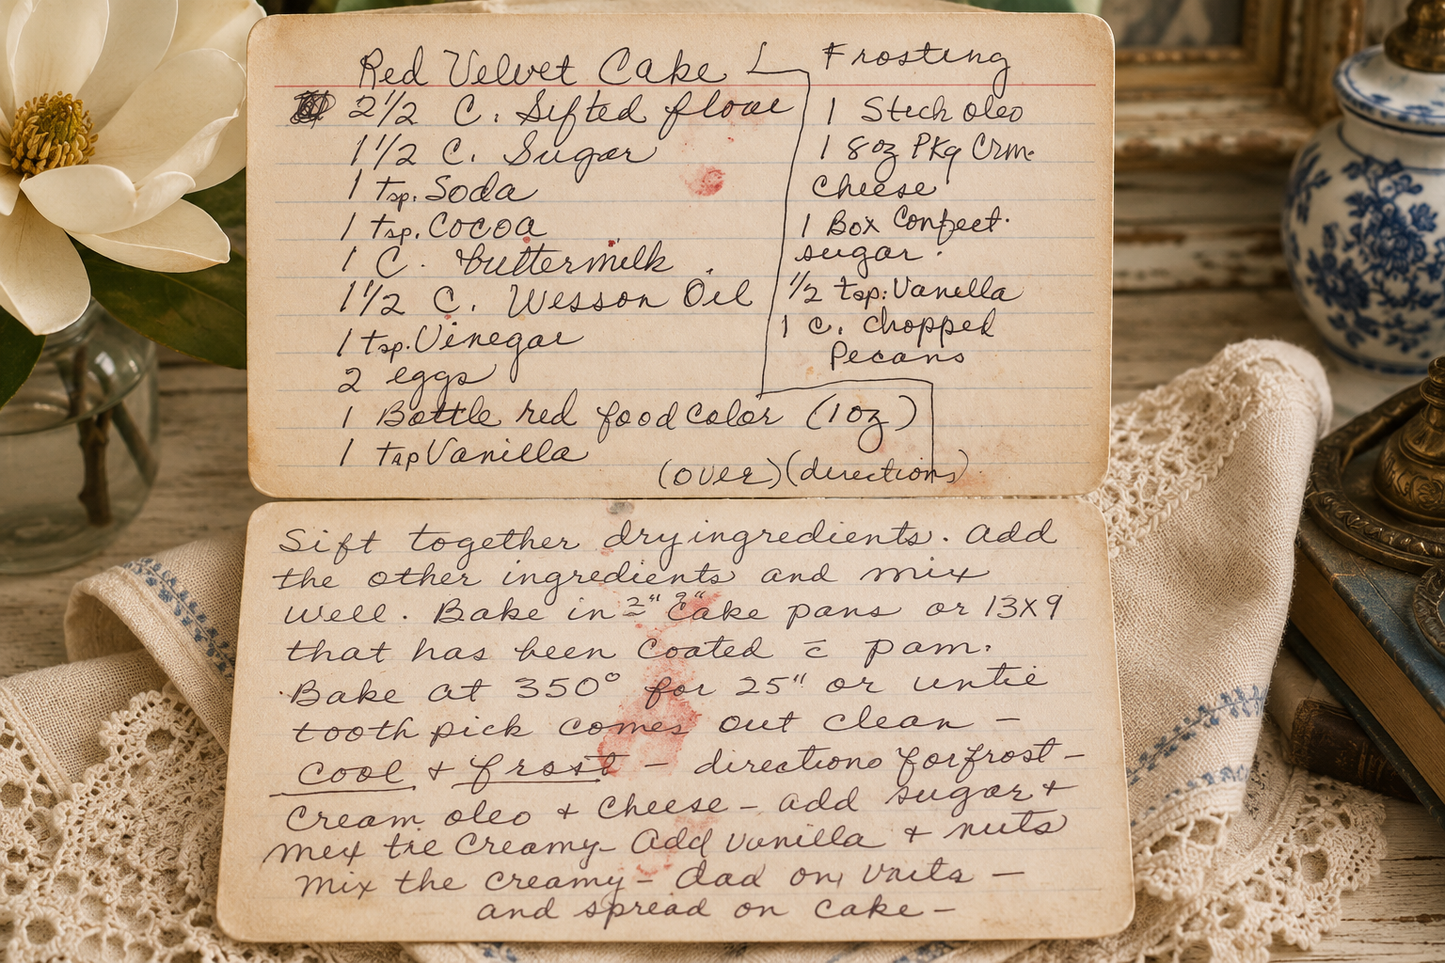 Red Velvet Cake
2 1/2 C. Sifted flour
1 1/2 C. Sugar
1 tsp. Soda
1 tsp. Cocoa
1 C. buttermilk
1 1/2 C. Wesson Oil
1 tsp. Vinegar
2 eggs
1 Bottle red food color (1 oz)
1 tsp Vanilla
(over) (directions)
Frosting
1 Stick oleo
1 8oz Pkg Crm.
Cheese
1 Box Confect.
sugar.
1/2 tsp. Vanilla
1 c. chopped
Pecans
Sift together dry ingredients. Add
the other ingredients and mix
well. Bake in 2" 9" Cake pans or 13X9
that has been coated c̄ pam.
Bake at 350° for 25" or
tooth pick comes out clean —
Cool & frost — directions for frost —
Cream oleo & Cheese — add sugar &
mex tre Creamy — Add vanilla & nuts
Mix the creamy — dad on —
and spread on cake —